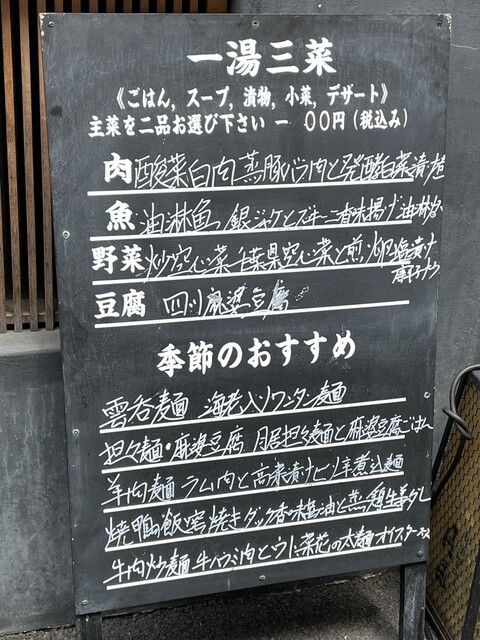 一湯三菜
《ごはん, スープ, 漬物, 小菜, デザート》
主菜を二品お選び下さい ー 00円(税込み)
肉 酸菜白肉 蒸豚バラ肉と発酵白菜漬け
魚 油淋魚 銀ジャケとズッキーニ香味揚げ油淋
野菜 炒空心菜 千葉県空心菜と煎り 塩漬け
豆腐 四川麻婆豆腐
季節のおすすめ
雲呑麺 海老入りワンタン麺
担々麺・麻婆豆腐 担々麺と麻婆豆腐ごはん
羊肉麺 ラム肉と高菜漬け 煮込麺
焼鴨飯 窯焼きダック香味醤油と蒸鶏生姜ダレ
牛肉炒麺 牛ハラミ肉とウド菜花の太麺オイスター